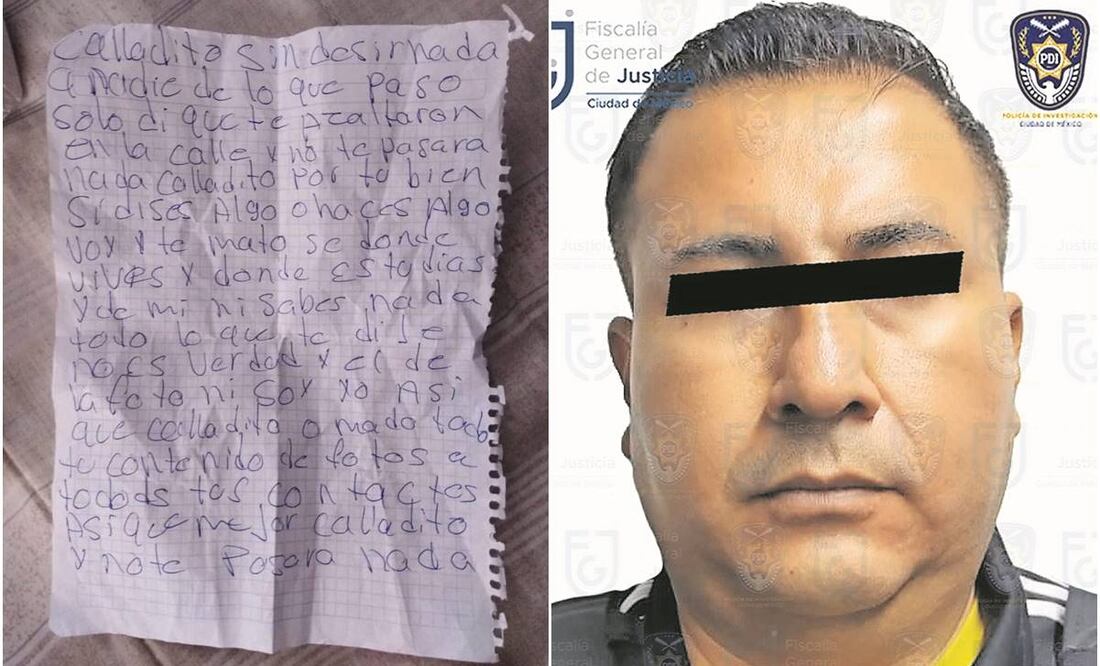 Calladito sin desir nada
a nadie de lo que paso
solo di que te azaltaron
en la calle y no te pasara
nada calladito por tu bien
si dises Algo o haces Algo
voy y te mato se donde
vives y donde estudias
y de mi ni sabes nada
todo lo que te dije
no es verdad y el de
la foto ni soy yo Asi
que calladito o mado todo
tu contenido de fotos a
todods tus contactos
Asi que mejor calladito
y note Pasara nada
Fiscalía
General
de Justicia
Ciudad de México
PDI
POLICÍA DE INVESTIGACIÓN
CIUDAD DE MÉXICO